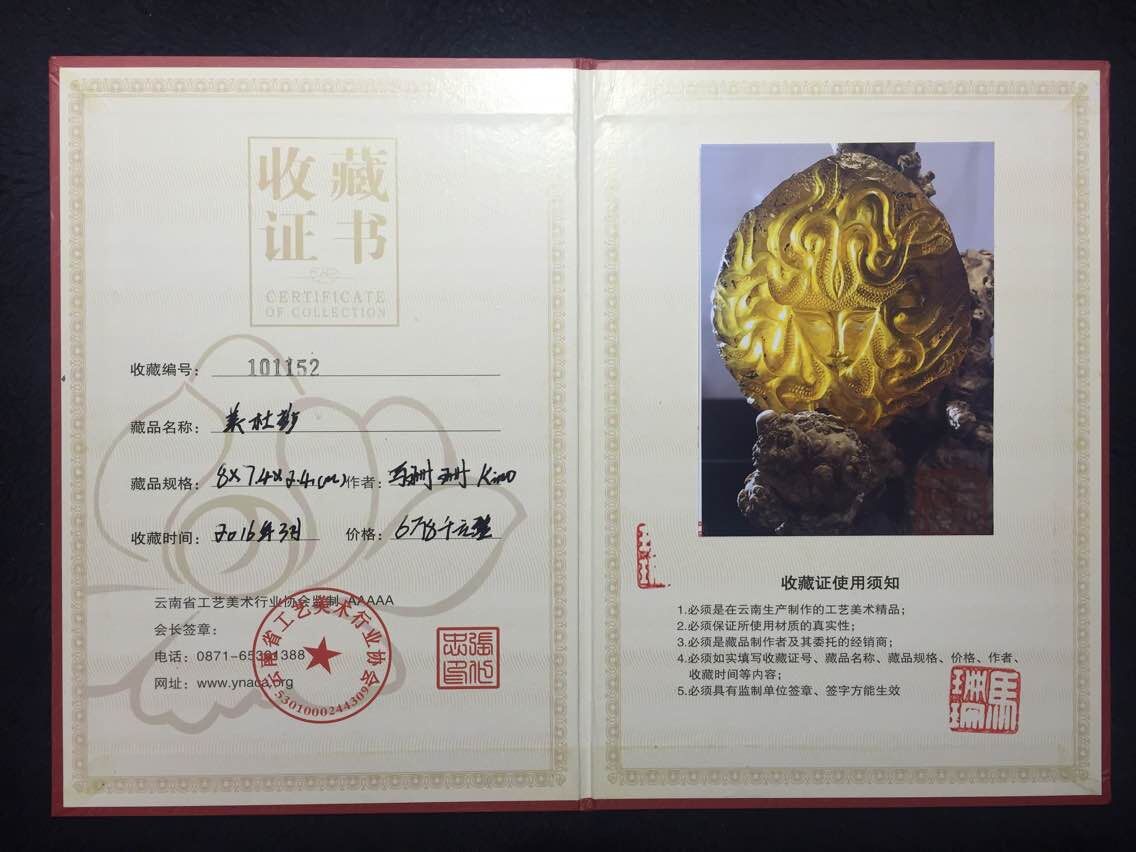 收藏
证书
CERTIFICATE
OF COLLECTION
收藏编号: 101152
藏品名称: 美杜莎
藏品规格: 8×7.4×2.4(cm) 作者: 马珊珊 Kimo
收藏时间: 2016年3月 价格: 678千元整
云南省工艺美术行业协会监制 AAAAA
会长签章:
电话: 0871-65391388
网址: www.ynaca.org
云南省工艺美术行业协会
5301000244309
收藏证使用须知
1.必须是在云南生产制作的工艺美术精品;
2.必须保证所使用材质的真实性;
3.必须是藏品制作者及其委托的经销商;
4.必须如实填写收藏证号、藏品名称、藏品规格、价格、作者、
收藏时间等内容;
5.必须具有监制单位签章、签字方能生效